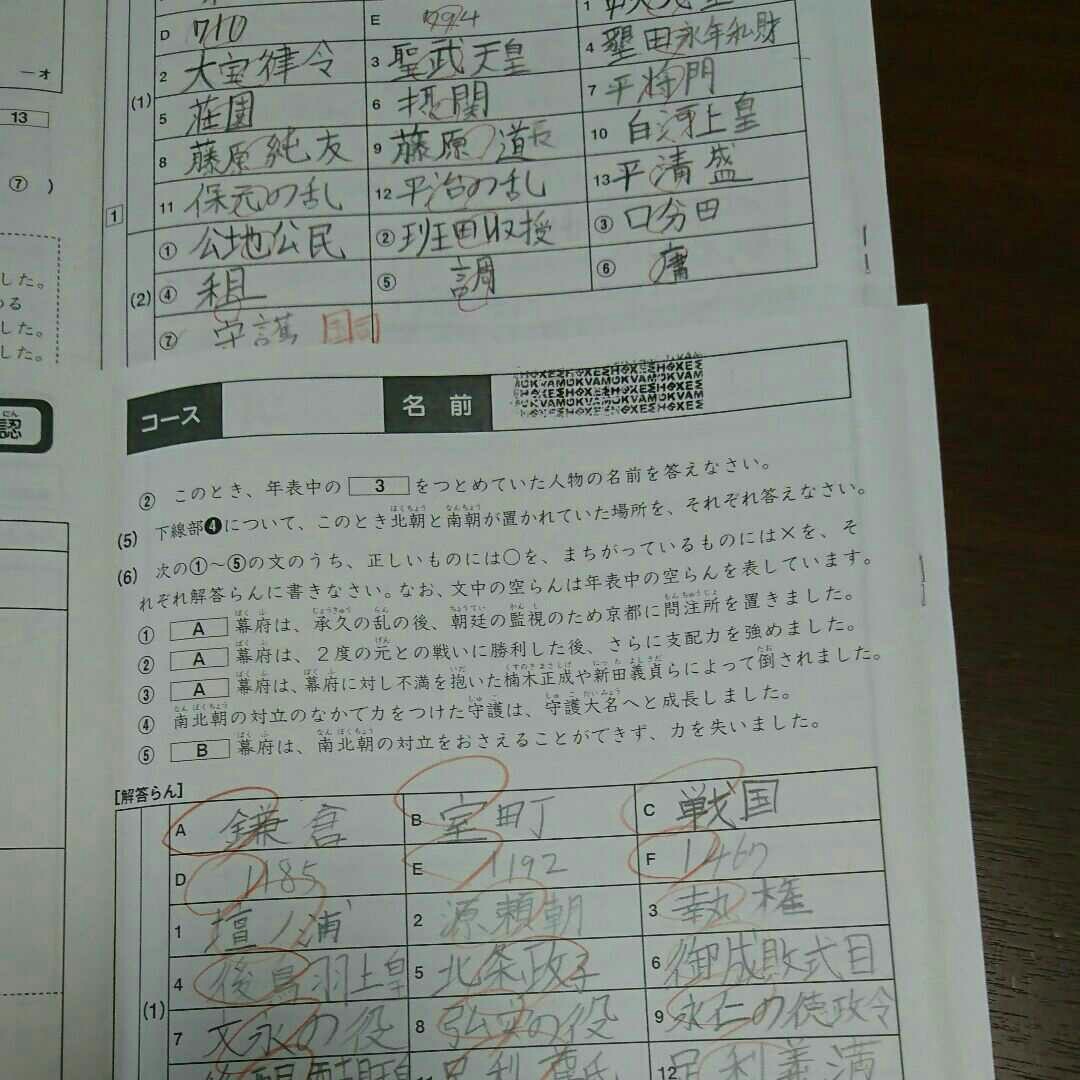 D 710 E 794 1
2 大宝律令 3 聖武天皇 4 墾田永年私財
(1)
5 荘園 6 摂関 7 平将門
8 藤原純友 9 藤原道長 10 白河上皇
11 保元の乱 12 平治の乱 13 平清盛
1
① 公地公民 ② 班田収授 ③ 口分田
(2)
④ 租 ⑤ 調 ⑥ 庸
⑦ 守護 国司
ーオ
13
⑦ )
した。
める
した。
した。
認
コース 名前
② このとき、年表中の 3 をつとめていた人物の名前を答えなさい。
(5) 下線部❹について、このとき北朝と南朝が置かれていた場所を、それぞれ答えなさい。
(6) 次の①～⑤の文のうち、正しいものには○を、まちがっているものには×を、そ
れぞれ解答らんに書きなさい。なお、文中の空らんは年表中の空らんを表しています。
① A 幕府は、承久の乱の後、朝廷の監視のため京都に問注所を置きました。
② A 幕府は、2度の元との戦いに勝利した後、さらに支配力を強めました。
③ A 幕府は、幕府に対し不満を抱いた楠木正成や新田義貞らによって倒されました。
④ 南北朝の対立のなかで力をつけた守護は、守護大名へと成長しました。
⑤ B 幕府は、南北朝の対立をおさえることができず、力を失いました。
[解答らん]
A 鎌倉 B 室町 C 戦国
D 1185 E 1192 F 1467
1 壇ノ浦 2 源頼朝 3 執権
4 後鳥羽上皇 5 北条政子 6 御成敗式目
(1)
7 文永の役 8 弘安の役 9 永仁の徳政令
足利尊氏 12 足利義満